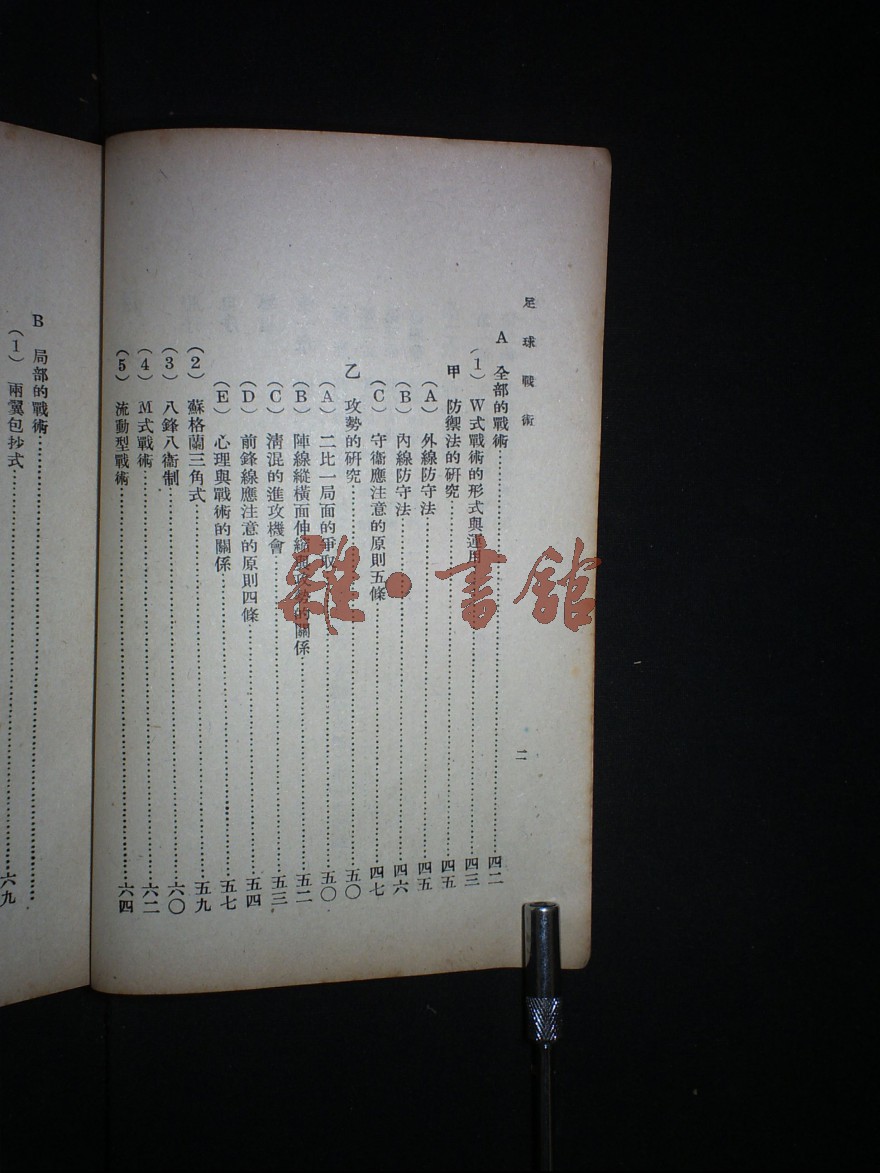 足球戰術
二
A 全部的戰術……四二
(1) W式戰術的形式與運用……四三
甲 防禦法的研究……四五
(A) 外線防守法……四五
(B) 內線防守法……四六
(C) 守衞應注意的原則五條……四七
乙 攻勢的研究……五〇
(A) 二比一局面的爭取……五〇
(B) 陣線縱橫面伸縮與攻勢的關係……五二
(C) 淸混的進攻機會……五三
(D) 前鋒線應注意的原則四條……五四
(E) 心理與戰術的關係……五七
(2) 蘇格蘭三角式……五九
(3) 八鋒八衞制……六〇
(4) M式戰術……六二
(5) 流動型戰術……六四
B 局部的戰術……
(1) 兩翼包抄式……六九
雜·書館